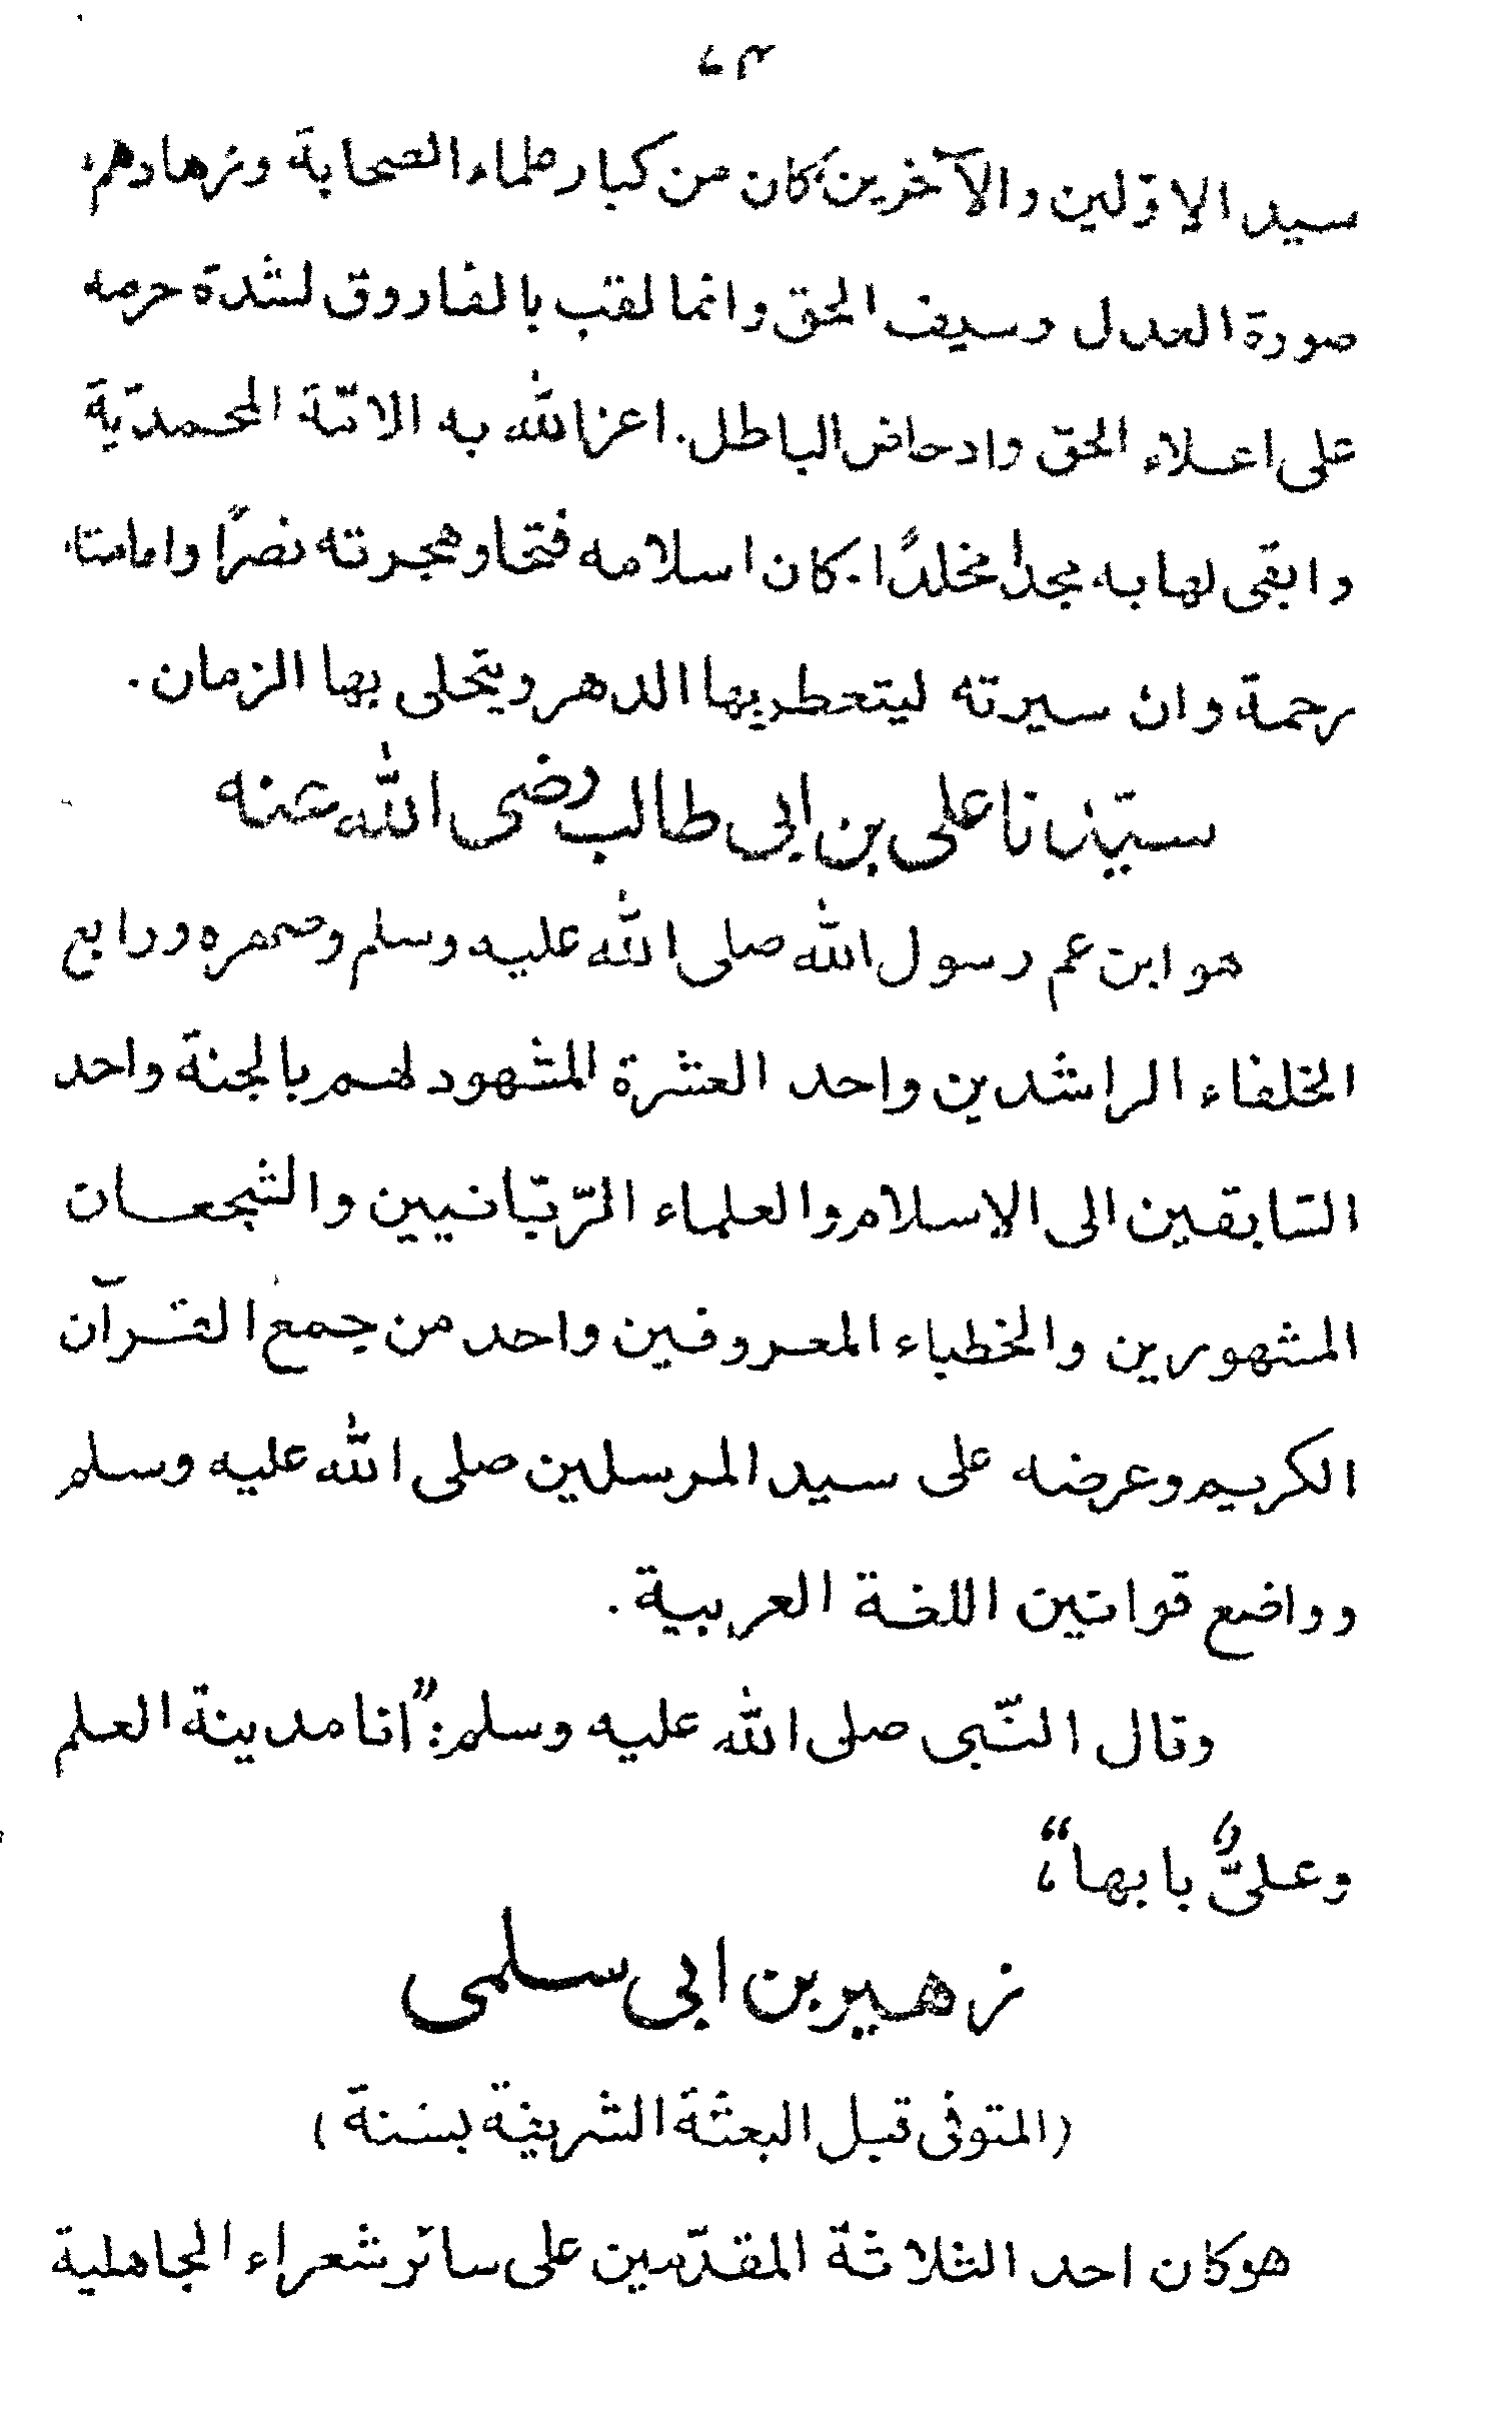 سيد الاوّلين والآخرين، كان من كبار علماء الصحابة وزهادهم،
صورة العدل وسيف الحق وانما لقب بالفاروق لشدة حرصه
على اعلاء الحق وادحاض الباطل. اعز الله به الامّة المحمديّة
وابقى لها به مجدا مخلدًا. كان اسلامه فتحا وهجرته نصرًا وامامته
رحمة وان سيرته ليتعطر بها الدهر ويتحلى بها الزمان.
سيّدنا على بن ابى طالب رضى الله عنه
هو ابن عم رسول الله صلى الله عليه وسلم وصهره ورابع
الخلفاء الراشدين واحد العشرة المشهود لهم بالجنة واحد
السّابقين الى الاسلام والعلماء الرّبّانيين والشجعان
المشهورين والخطباء المعروفين واحد من جمع القرآن
الكريم وعرضه على سيد المرسلين صلى الله عليه وسلم
وواضع قوانين اللغة العربية.
وقال النّبى صلى الله عليه وسلم: ”انا مدينة العلم
وعلىٌّ بابها“،
زهير بن ابى سلمى
(المتوفى قبل البعثة الشريفة بسنة)
هو كان احد الثلاثة المقدّمين على سائر شعراء الجاهلية